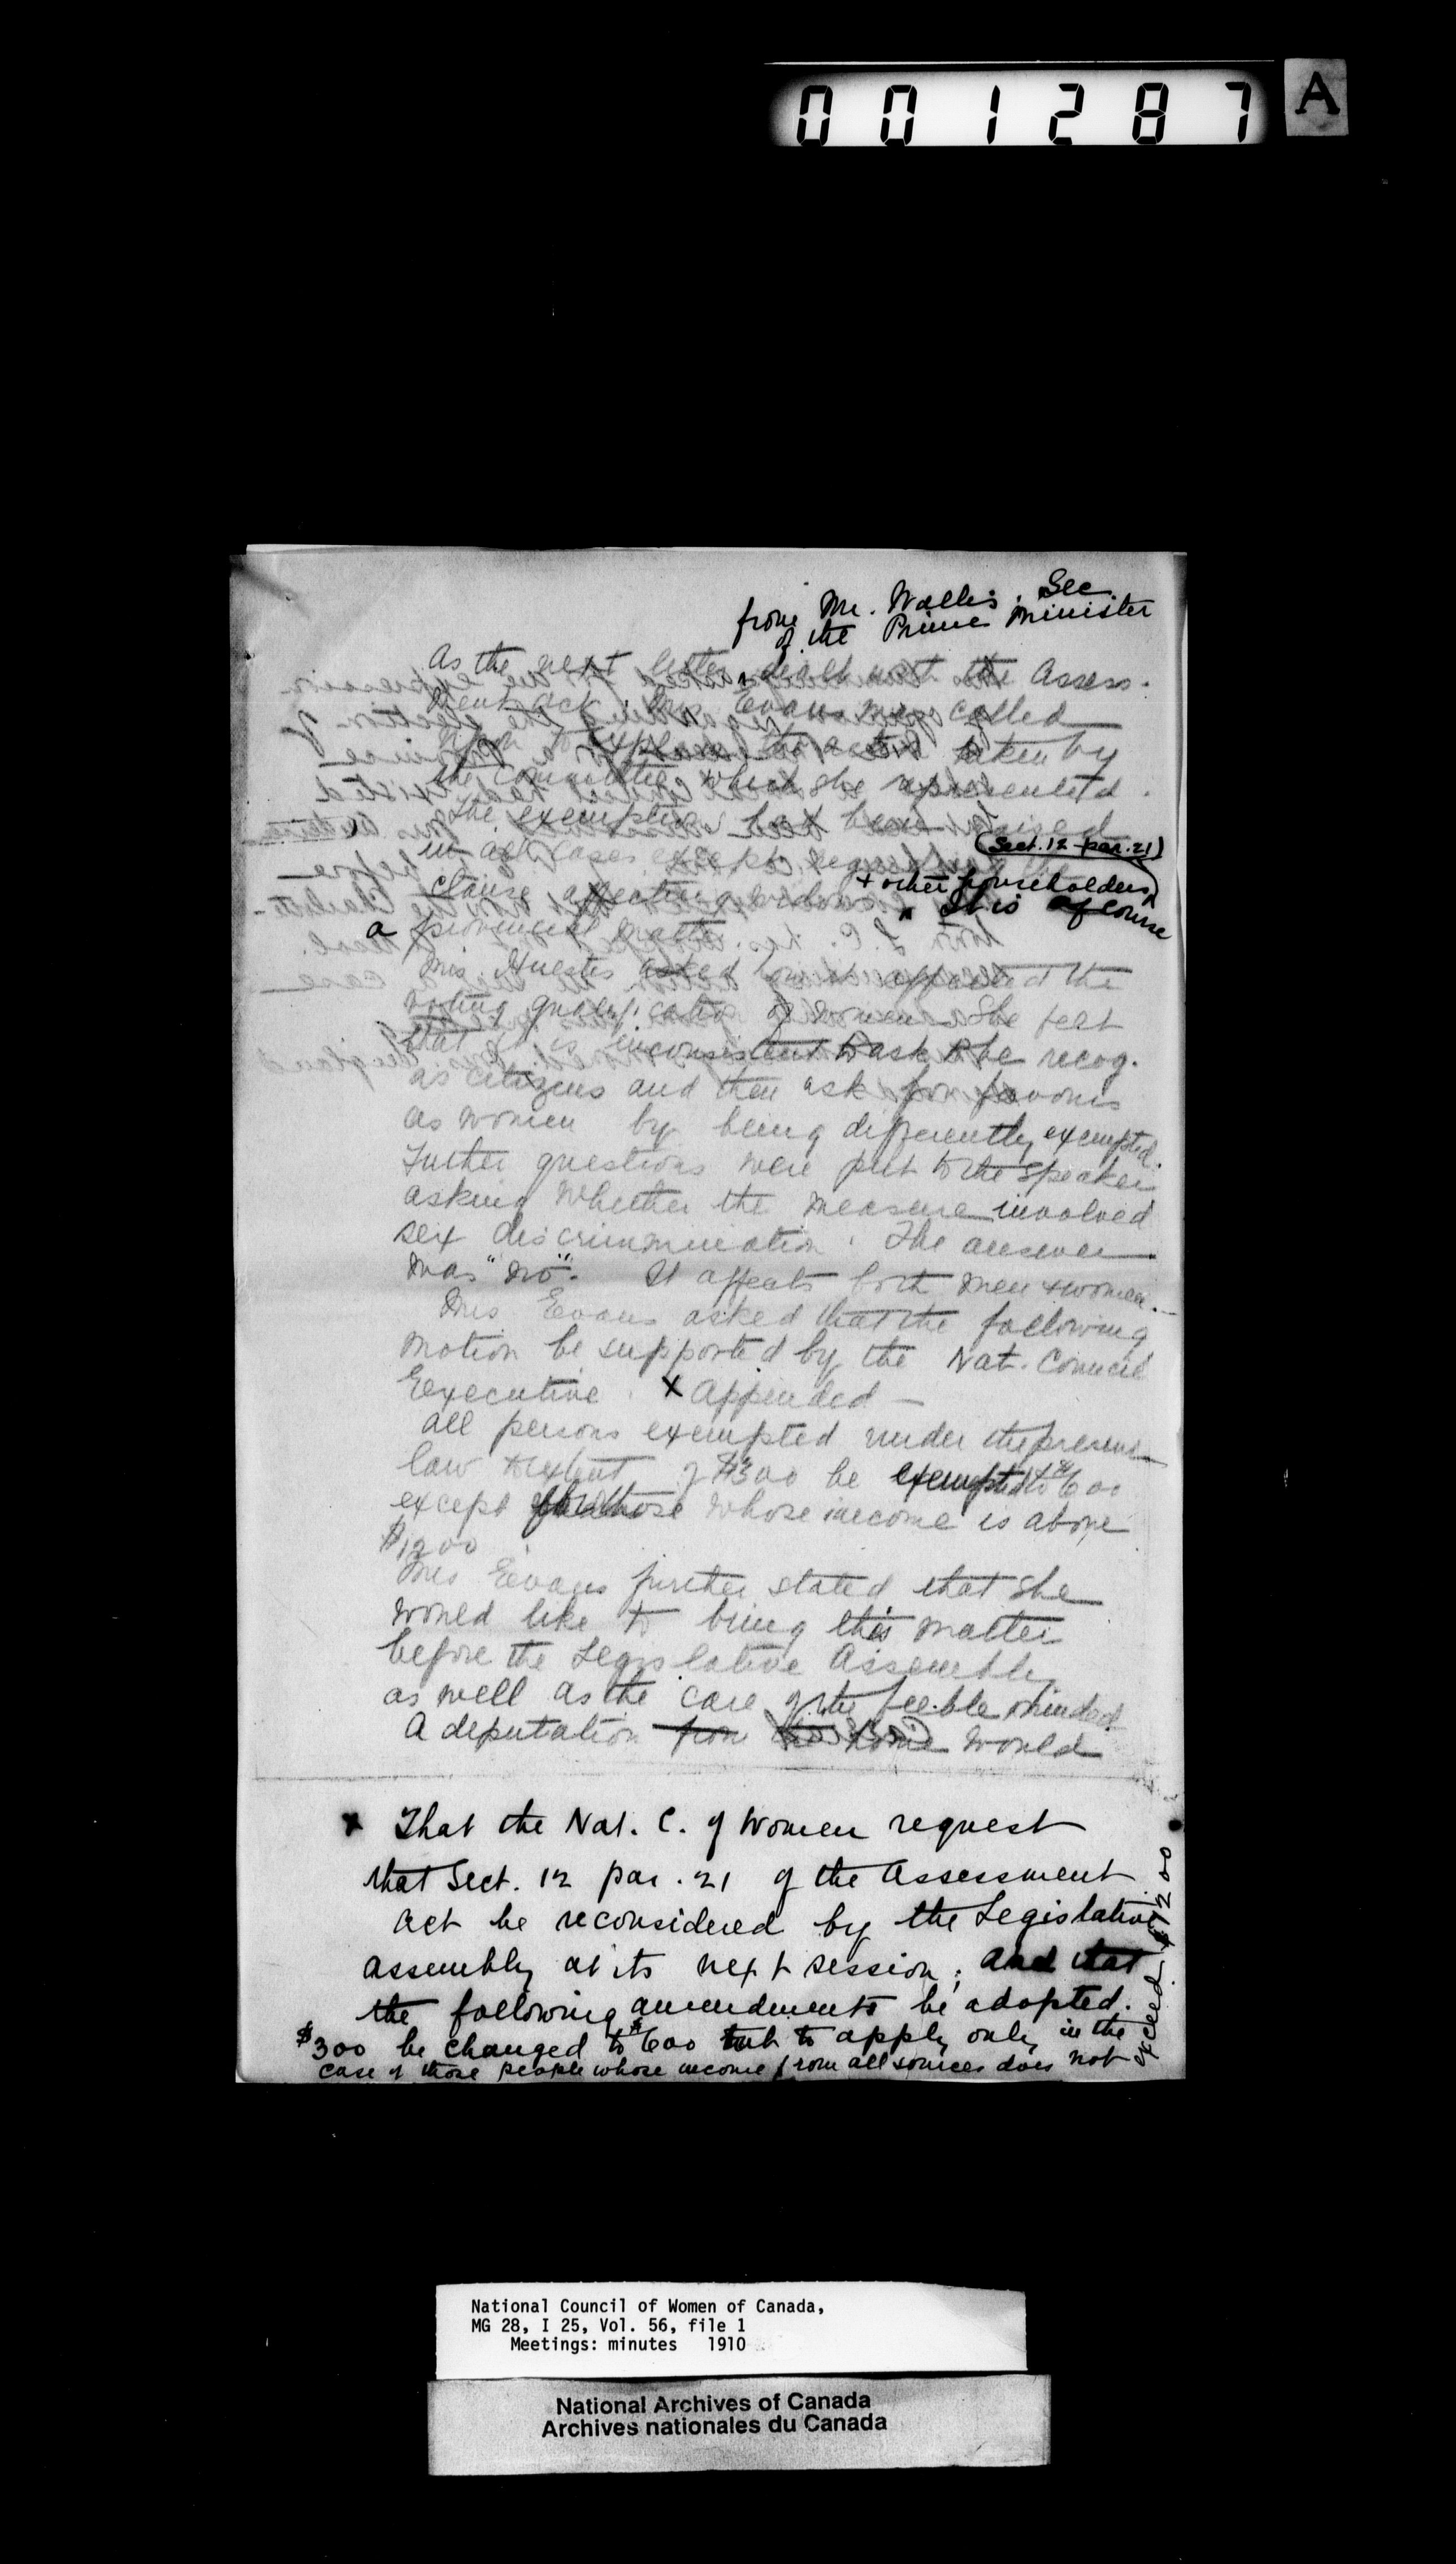 001287 A
from Mr. Wallis. Sec.
of the Prime Minister
As the next letter dealt with the Assess-
ment Act, Mrs. Evans was called
upon to explain the action taken by
the Committee which she represented.
The exemption had been raised
(Sect. 12 par. 21)
in all cases except regarding the
clause affecting widows + other householders
x It is of course
a provincial matter.
Mrs. Huestis asked how it affected the
voting qualification of women. She felt
that it is inconsistent to ask to be recog.
as citizens and then ask for favours
as women by being differently exempted.
Further questions were put to the speaker
asking whether the measure involved
sex discrimmination. The answer
was "no". It affects both men + women.
Mrs Evans asked that the following
motion be supported by the Nat. Council
Executive. X Appended —
all persons exempted under the present
law to extent of $300 be exempted to $600
except those whose income is above
$1200
Mrs Evans further stated that she
would like to bring this matter
before the Legislative Assembly
as well as the care of the feeble minded
A deputation from would
x That the Nat. C. of Women request
that Sect. 12 par. 21 of the Assessment
Act be reconsidered by the Legislative
assembly at its next session; and that
the following amendments be adopted.
$300 be changed to $600 but to apply only in the
case of those people whose income from all sources does not
exceed $1200
National Council of Women of Canada,
MG 28, I 25, Vol. 56, file 1
Meetings: minutes 1910
National Archives of Canada
Archives nationales du Canada